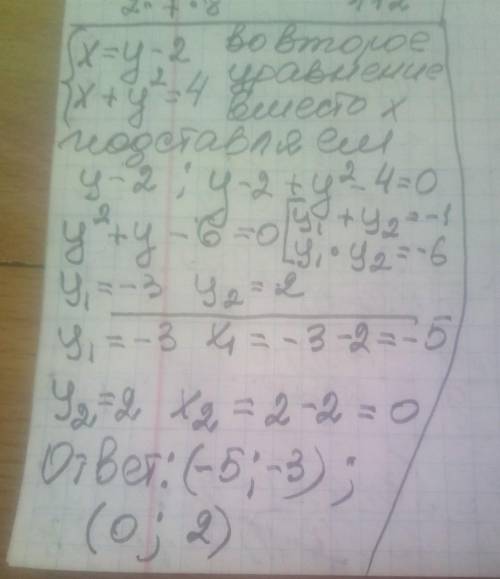 {x=y-2 во второе
{x+y²=4 уравнение
вместо x
подставляем
y-2; y-2+y²-4=0
y²+y-6=0 [y₁+y₂=-1
y₁·y₂=-6
y₁=-3 y₂=2
y₁=-3 x₁=-3-2=-5
y₂=2 x₂=2-2=0
Ответ: (-5;-3);
(0; 2)